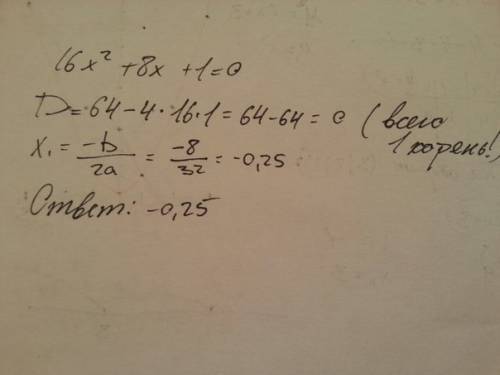 16x² +8x +1=0
D=64-4·16·1=64-64=0 (всего 1 корень!)
x₁=-b/2a=-8/32=-0,25
Ответ: -0,25